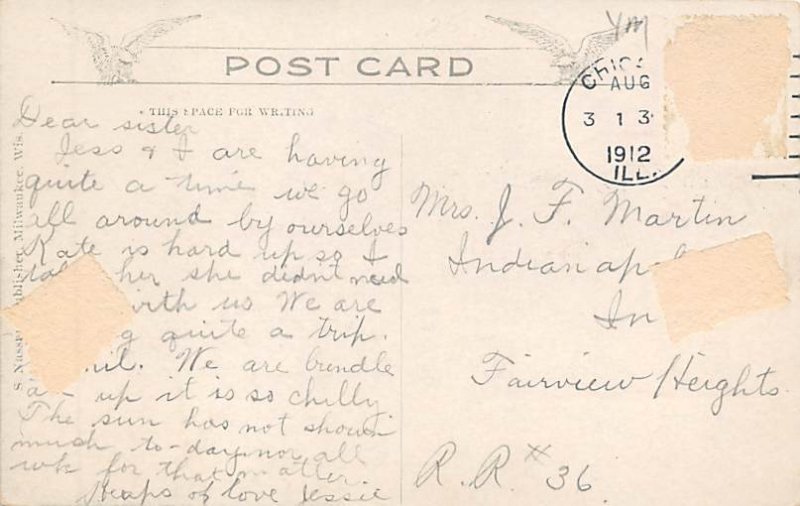 POST CARD
THIS SPACE FOR WRITING
S. Nass Publisher, Milwaukee, Wis.
YM
CHIC
AUG
3 13
1912
ILL.
Dear sister
Jess & I are having
quite a time we go
all around by ourselves
Kate is hard up so I
her she didn't need
with us We are
g quite a trip.
We are bundle
up it is so chilly
The sun has not shown
much to-day nor all
wk for that matter.
Heaps of love Jessie
Mrs. J. F. Martin
Indianap
In
Fairview Heights.
R. R. # 36.